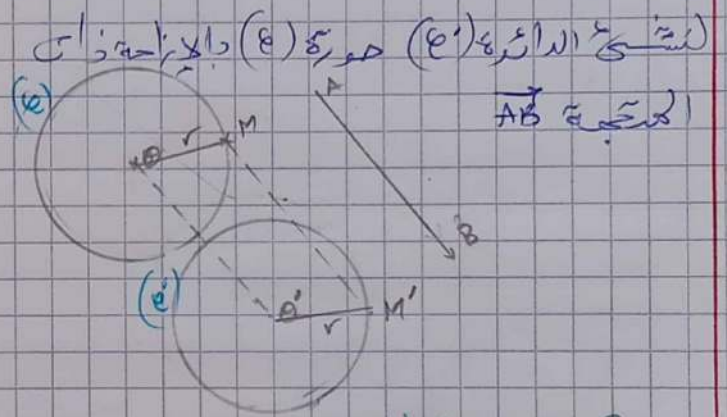 ننشئ الدائرة (C') صورة (C) بالإزاحة ذات
المتجهة AB
(C)
A
M
r
O
B
(C')
O'
r
M'